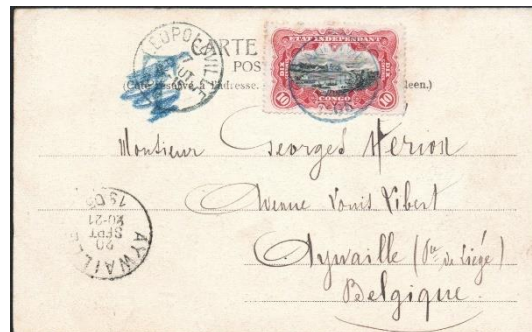 LEOPOLDVILLE
CARTE
POS
(Côté réservé à l'adresse.
leen.)
ETAT INDEPENDANT
DU CONGO
10
10
Monsieur Georges Herion
Avenue Louis Libert
Aywaille (Pce de Liége)
Belgique.
AYWAILLE
20
SEPT
20-21